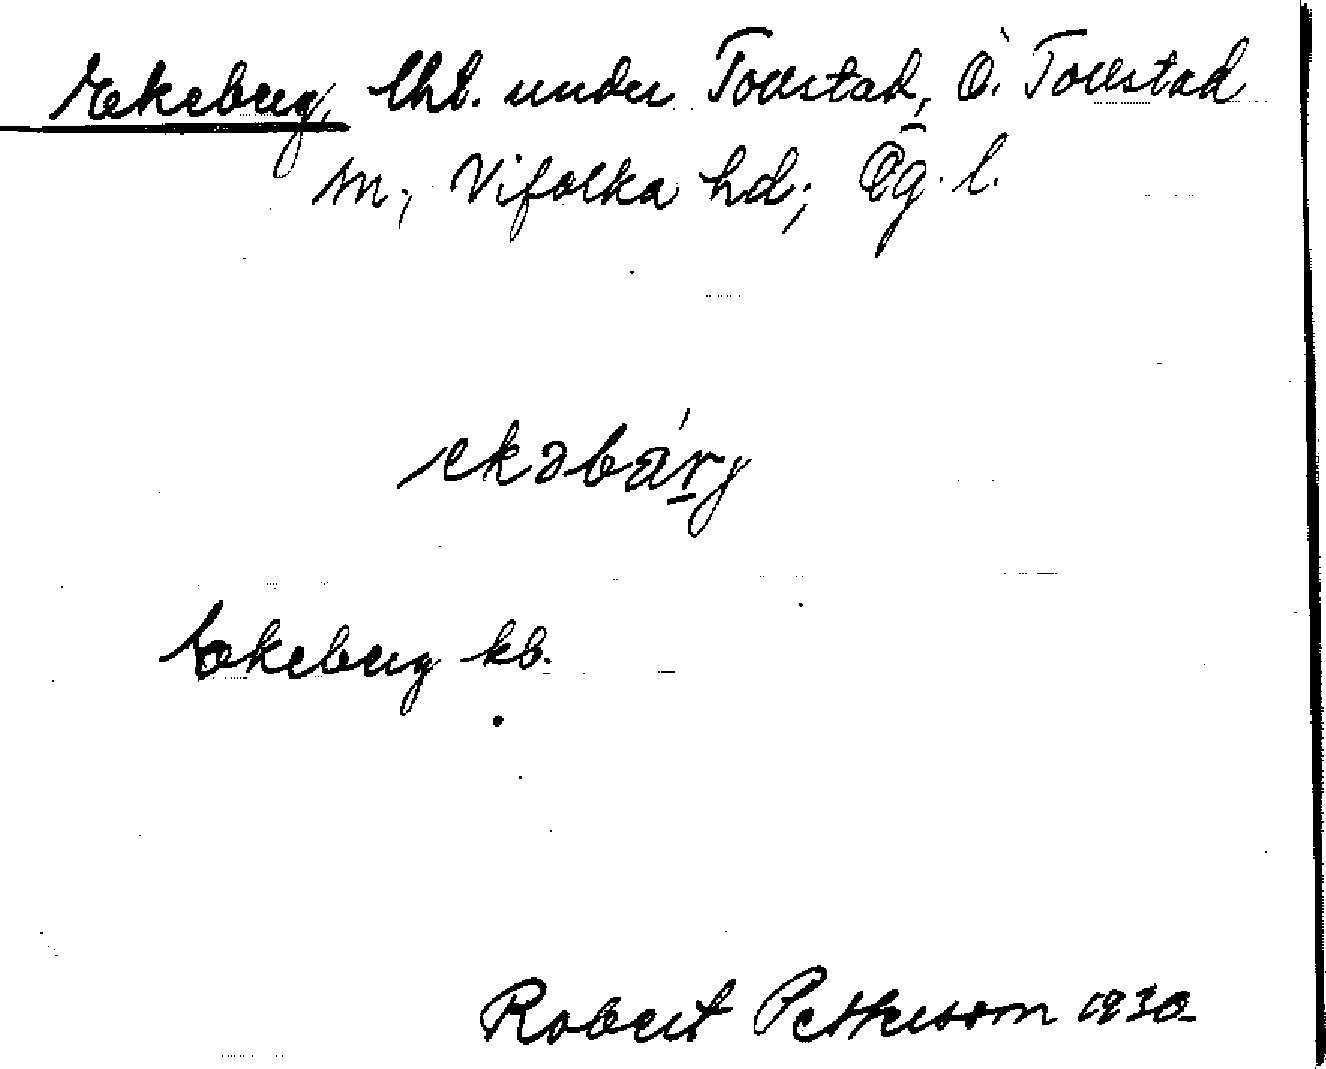 Ekeberg, lhl. under Tollstad, Ö. Tollstad
sn, Vifolka hd; Ög. l.
ekəbárj
Ekeberg kb.
Robert Pettersson 1930